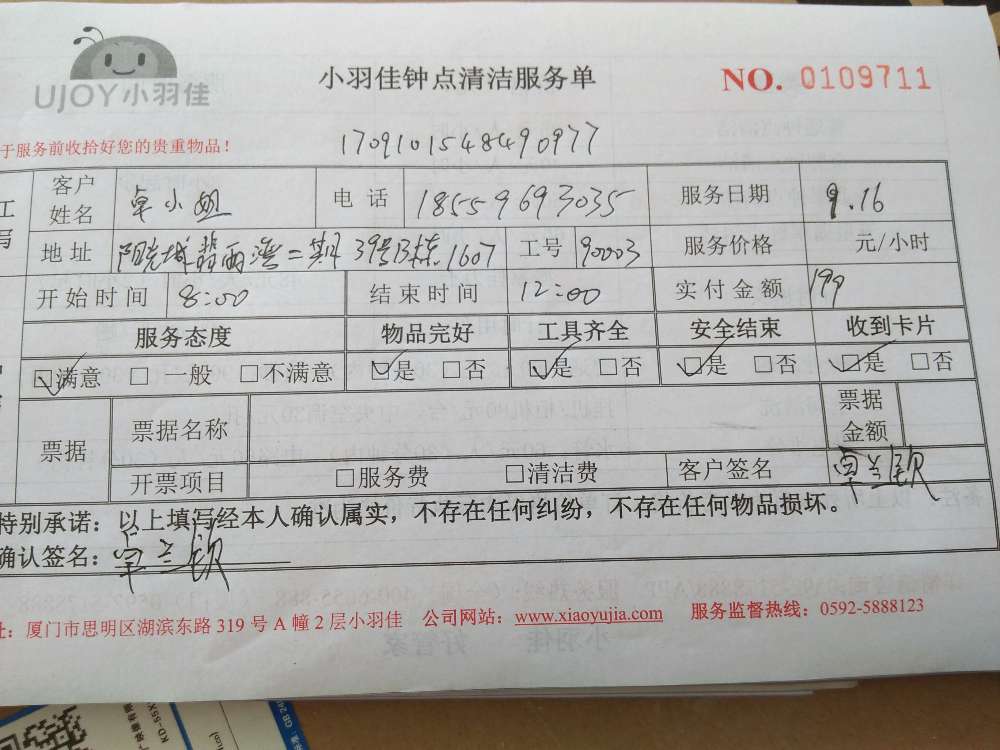 UJOY小羽佳
小羽佳钟点清洁服务单
NO. 0109711
于服务前收拾好您的贵重物品！
170910154849 0977
客户姓名 卓小姐 电话 18559693035 服务日期 9.16
地址 阳光城翡丽湾二期39号B栋1607 工号 90003 服务价格 元/小时
开始时间 8:00 结束时间 12:00 实付金额 199
服务态度 物品完好 工具齐全 安全结束 收到卡片
☑满意 □一般 □不满意 ☑是 □否 ☑是 □否 ☑是 □否 ☑是 □否
票据 票据名称 票据金额
开票项目 □服务费 □清洁费 客户签名 卓兰欽
特别承诺：以上填写经本人确认属实，不存在任何纠纷，不存在任何物品损坏。
确认签名：卓兰欽
址：厦门市思明区湖滨东路 319 号 A 幢 2 层小羽佳 公司网站：www.xiaoyujia.com 服务监督热线：0592-5888123
KD-55X